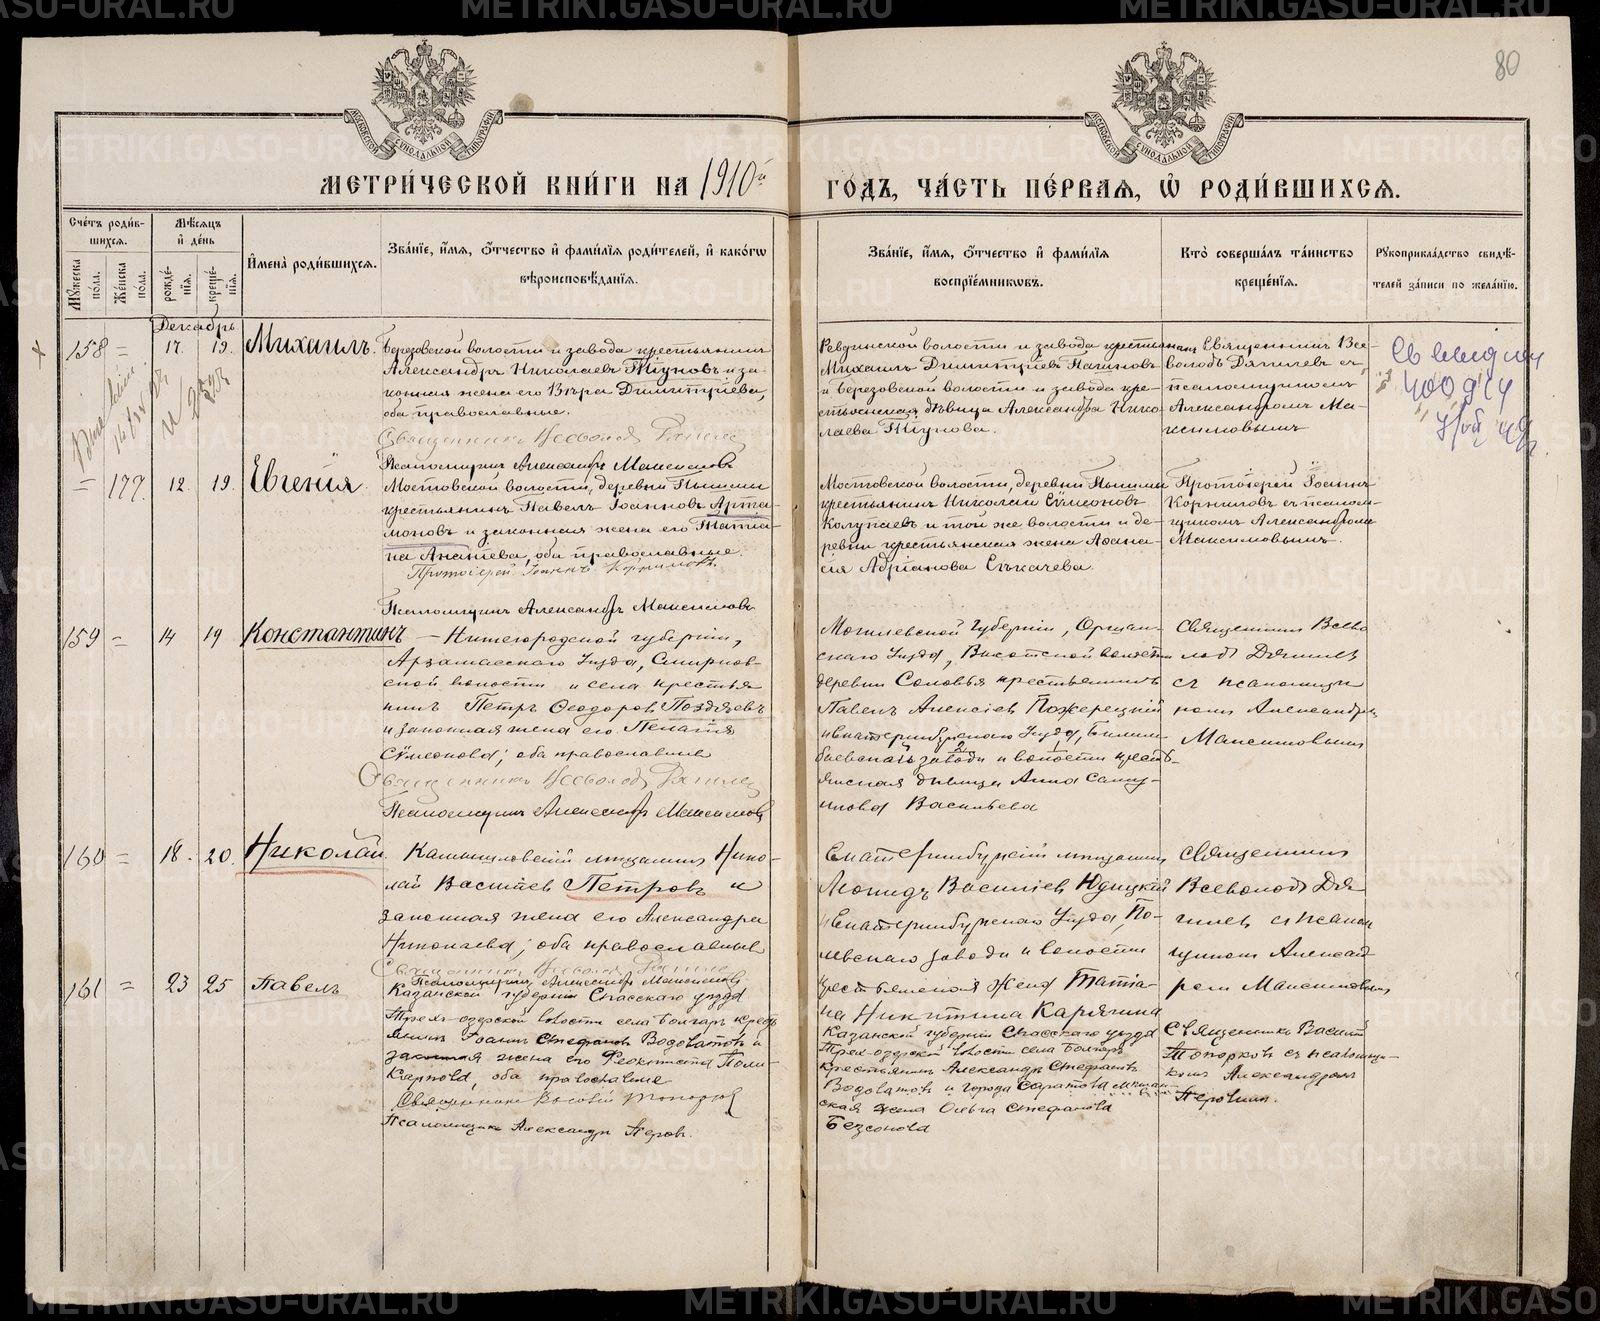 80
МЕТРИ́ЧЕСКОЙ КНИ́ГИ НА 1910й ГОДЪ, ЧА́СТЬ ПЕ́РВАЯ, Ѡ РОДИ́ВШИХСЯ.
Сче́тъ роди́в-
шихся.
Мѣ́сяцъ
и҆ де́нь
Му́жеска
по́ла.
Же́нска
по́ла.
рожде́-
нїя.
креще́-
нїя.
И҆мена̀ роди́вшихся.
Зва́нїе, и҆́мя, ѻ҆́тчество и҆ фами́лїя роди́телей, и҆ како́гѡ
вѣроисповѣ́данїя.
Зва́нїе, и҆́мя, ѻ҆́тчество и҆ фами́лїя
воспрїе́мникѡвъ.
Кто̀ соверша́лъ та́инство
креще́нїя.
Рꙋкоприкла́дство свидѣ́-
телей за́писи по жела́нїю.
Декабрь
158 = 17. 19. Михаилъ.
Березовской волости и завода крестьянинъ
Александръ Николаевъ Тиуновъ и за-
конная жена его Вѣра Димитріева,
оба православные.
Священникъ Всеволодъ
Псаломщикъ Александръ Максимовъ
Ревдинской волости и завода крестьянинъ
Михаилъ Димитріевъ
и Березовской волости и завода кре-
стьянская дѣвица Александра Нико-
лаева Тиунова.
Священникъ Все-
володъ съ
псаломщикомъ
Александромъ Ма-
ксимовымъ
= 177. 12. 19. Евгенія.
Мостовской волости, деревни Пышмы
крестьянинъ Павелъ Іоанновъ Арта-
моновъ и законная жена его Татіа-
на Ананіева, оба православные.
Протоіерей Іоаннъ Корниловъ.
Псаломщикъ Александръ Максимовъ
Мостовской волости, деревни Пышмы
крестьянинъ Николай Сѵмеоновъ
Колупаевъ и той же волости и де-
ревни крестьянская жена Аѳана-
сія Адріанова
Протоіерей Іоаннъ
Корниловъ съ псалом-
щикомъ Александромъ
Максимовымъ.
159 = 14 19 Константинъ
— Нижегородской губерніи,
Арзамасскаго Уѣзда, Смирнов-
ской волости и села крестья-
нинъ Петръ Ѳеодоровъ Поздяевъ
и законная жена его Пелагія
Сѵмеонова; оба православные
Священникъ Всеволодъ
Псаломщикъ Александръ Максимовъ
Могилевской Губерніи, Оршан-
скаго Уѣзда, Высотской волости
деревни Соловья крестьянинъ
Павелъ Алексіевъ Пожерицкій
и Екатеринбургскаго Уѣзда, Билим-
баевскаго завода и волости кресть-
янская дѣвица Анна Саму-
илова Васильева
Священникъ Всево-
лодъ
съ псаломщи-
комъ Александромъ
Максимовымъ
160 = 18. 20. Николай.
Камышловскій мѣщанинъ Нико-
лай Васильевъ Петровъ и
законная жена его Александра
Николаева; оба православные
Священникъ Всеволодъ
Псаломщикъ Александръ Максимовъ
Екатеринбургскій мѣщанинъ
Леонидъ Васильевъ Юдицкій
и Екатеринбургскаго Уѣзда, По-
левскаго завода и волости
крестьянская Жена Татіа-
на Никитина Карякина
Священникъ
Всеволодъ
съ псалом-
щикомъ Александ-
ромъ Максимовымъ
161 = 23 25 Павелъ
Казанской губерніи Спасскаго уѣзда
Трех-озерской волости села Болгаръ кресть-
янинъ Іоаннъ Стефановъ Водоватовъ и
законная жена его Феоктиста Поли-
карпова, оба православные
Священникъ Василій Топорковъ
Псаломщикъ Александръ Перовъ.
Казанской губерніи Спасскаго уѣзда
Трех-озерской волости села Болгаръ
крестьянинъ Александръ Стефановъ
Водоватовъ и города Саратова мѣщан-
ская жена Ольга Стефанова
Безсонова
Священникъ Василій
Топорковъ съ псаломщи-
комъ Александромъ
Перовымъ.
METRIKI.GASO-URAL.RU